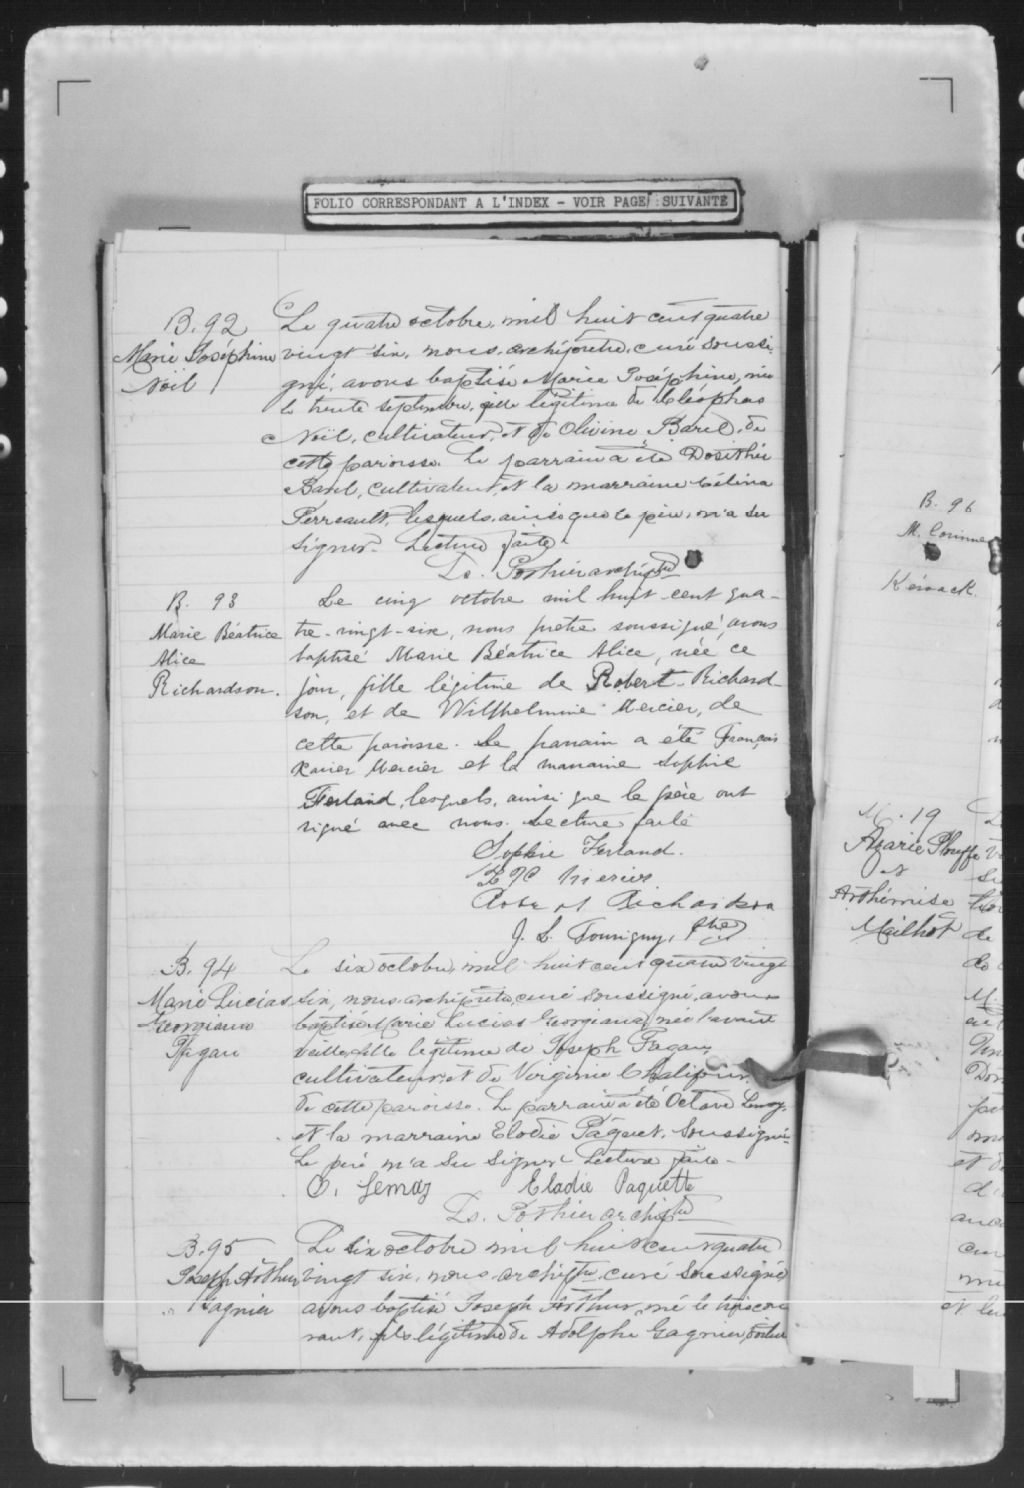 FOLIO CORRESPONDANT A L'INDEX - VOIR PAGE SUIVANTE
B. 92
Marie Joséphine
Noël
Le quatre octobre, mil huit cent quatre
vingt six, nous, archiprêtre, curé soussi-
gné, avons baptisé Marie Joséphine, née
le trente septembre, fille légitime de Cléophas
Noël, cultivateur, et de Olivine Baril, de
cette paroisse. Le parrain a été Dosithée
Baril, cultivateur, et la marraine Célina
Perreault, lesquels, ainsi que le père, n'a su
signer. Lecture faite.
Ls. Pothier archiptre
B. 93
Marie Béatrice
Alice
Richardson.
Le cinq octobre mil huit cent qua-
tre-vingt-six, nous prêtre soussigné, avons
baptisé Marie Béatrice Alice, née ce
jour, fille légitime de Robert Richard-
son, et de Wilthelmine Mercier, de
cette paroisse. Le parrain a été François
Xavier Mercier et la marraine Sophie
Ferland, lesquels, ainsi que le père ont
signé avec nous. Lecture faite
Sophie Ferland.
F X Mercier
Robert Richardson
J. L. Tourigny, Ptre
B. 94
Marie Lucias
Georgiana
Pagau
Le six octobre, mil huit cent quatre vingt
six, nous, archiprêtre, curé soussigné, avons
baptisé Marie Lucias Georgiana, née l'avant
veille, fille légitime de Joseph Pagau,
cultivateur, et de Virginie Chalifour,
de cette paroisse. Le parrain a été Octave Lemay,
et la marraine Elodie Paquet, soussignés.
Le père n'a su signer. Lecture faite.
O. Lemay Elodie Paquette
Ls. Pothier archiptre
B. 95
Joseph Arthur
Gagnier
Le six octobre mil huit cent quatre
vingt six, nous, archiptre, curé soussigné
avons baptisé Joseph Arthur, né le trois cou
rant, fils légitime de Adolphe Gagnier,
B. 96
M. Corinne
Kérouack
M. 19
Azarie Plouffe
et
Arthémise
Mailhot